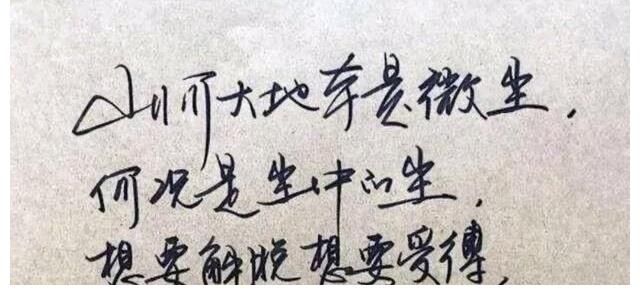 山河大地本是微尘，
何况是尘中的尘，
想要解脱想要受得，